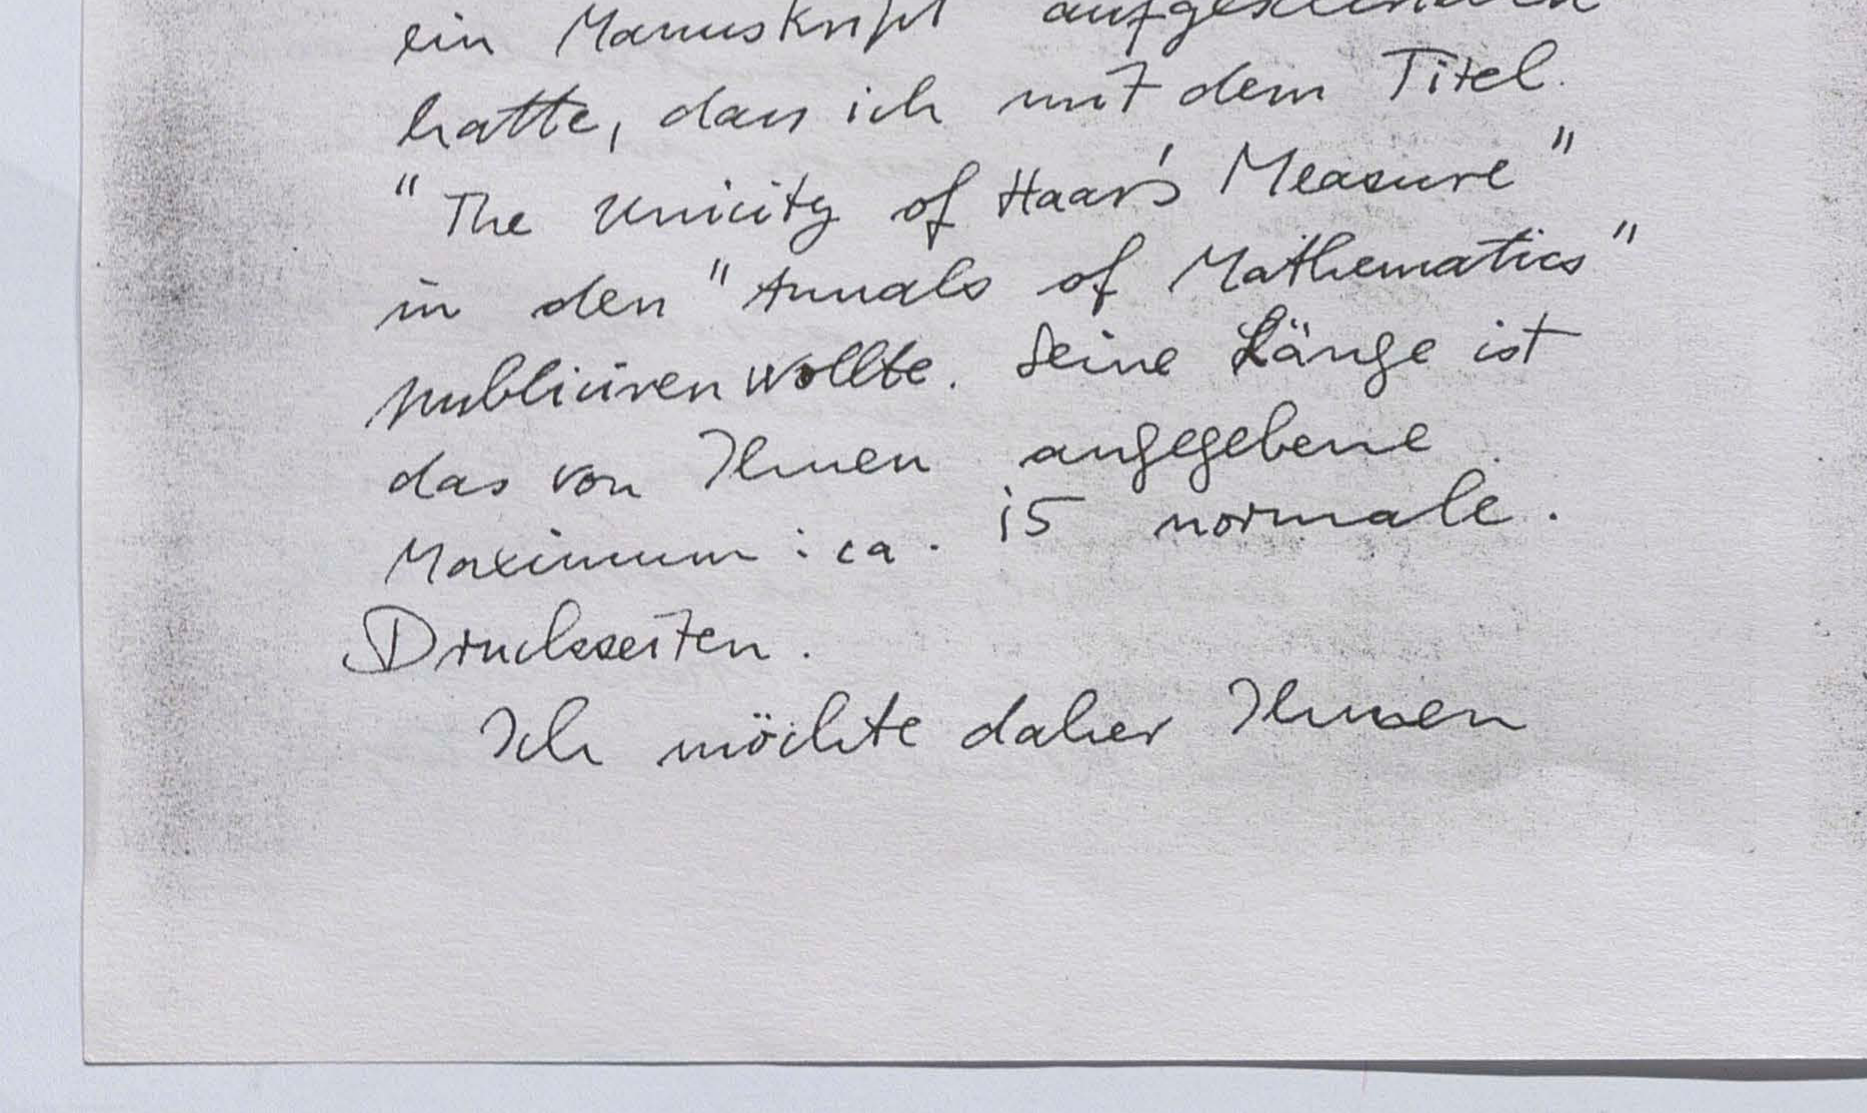 ein Manuskript aufgeschrieben
hatte, dass ich mit dem Titel
"The Unicity of Haar's Measure"
in den "Annals of Mathematics"
publiciren wollte. Seine Länge ist
das von Ihnen angegebene
Maximum : ca. 15 normale
Druckseiten.
Ich möchte daher Ihnen